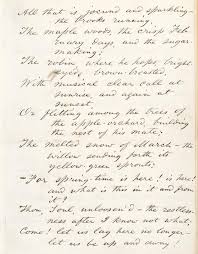 All that is jocund and sparkling—
the brooks running,
The maple woods, the crisp Feb-
ruary days and the sugar
making;
The robin where he hops, bright
eyed, brown breasted,
With musical clear call at
sunrise, and again at
sunset,
Or flitting among the trees of
the apple-orchard, building
the nest of his mate;
The melted snow of March— the
willow sending forth its
yellow-green sprouts;
—For spring-time is here! is here!
and what is this in it and from
it?
Thou, Soul, unloosen'd— the restless-
ness after I know not what;
Come! let us lag here no longer—
let us be up and away!